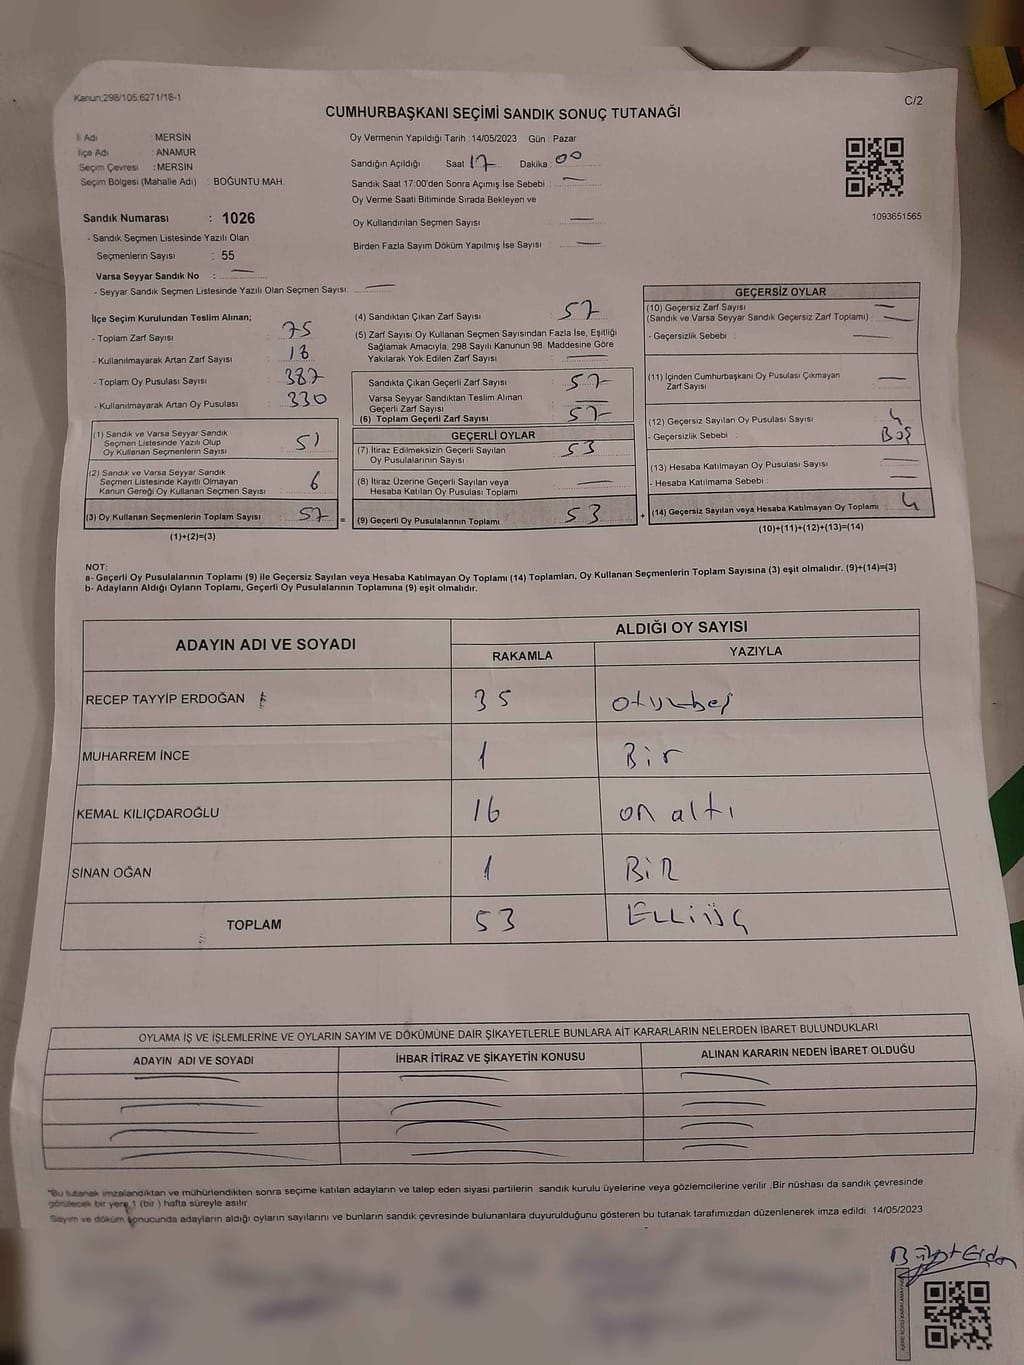 Kanun;298/105;6271/18-1
C/2
CUMHURBAŞKANI SEÇİMİ SANDIK SONUÇ TUTANAĞI
İl Adı : MERSİN
İlçe Adı : ANAMUR
Seçim Çevresi : MERSİN
Seçim Bölgesi (Mahalle Adı) : BOĞUNTU MAH.
Oy Vermenin Yapıldığı Tarih :14/05/2023 Gün : Pazar
Sandığın Açıldığı Saat 17 Dakika : 00
Sandık Saat 17:00'den Sonra Açımış İse Sebebi :
Oy Verme Saati Bitiminde Sırada Bekleyen ve
Oy Kullandırılan Seçmen Sayısı :
Birden Fazla Sayım Döküm Yapılmış İse Sayısı :
1093651565
Sandık Numarası : 1026
- Sandık Seçmen Listesinde Yazılı Olan
Seçmenlerin Sayısı : 55
Varsa Seyyar Sandık No :
- Seyyar Sandık Seçmen Listesinde Yazılı Olan Seçmen Sayısı:
İlçe Seçim Kurulundan Teslim Alınan;
- Toplam Zarf Sayısı : 75
- Kullanılmayarak Artan Zarf Sayısı : 18
- Toplam Oy Pusulası Sayısı : 387
- Kullanılmayarak Artan Oy Pusulası : 330
(1) Sandık ve Varsa Seyyar Sandık
Seçmen Listesinde Yazılı Olup
Oy Kullanan Seçmenlerin Sayısı : 51
(2) Sandık ve Varsa Seyyar Sandık
Seçmen Listesinde Kayıtlı Olmayan
Kanun Gereği Oy Kullanan Seçmen Sayısı : 6
(3) Oy Kullanan Seçmenlerin Toplam Sayısı : 57 =
(1)+(2)=(3)
(4) Sandıktan Çıkan Zarf Sayısı : 57
(5) Zarf Sayısı Oy Kullanan Seçmen Sayısından Fazla İse, Eşitliği
Sağlamak Amacıyla, 298 Sayılı Kanunun 98. Maddesine Göre
Yakılarak Yok Edilen Zarf Sayısı :
Sandıkta Çıkan Geçerli Zarf Sayısı : 57
Varsa Seyyar Sandıktan Teslim Alınan
Geçerli Zarf Sayısı :
(6) Toplam Geçerli Zarf Sayısı : 57
GEÇERLİ OYLAR
(7) İtiraz Edilmeksizin Geçerli Sayılan
Oy Pusulalarının Sayısı : 53
(8) İtiraz Üzerine Geçerli Sayılan veya
Hesaba Katılan Oy Pusulası Toplamı :
(9) Geçerli Oy Pusulalarının Toplamı : 53 +
GEÇERSİZ OYLAR
(10) Geçersiz Zarf Sayısı
(Sandık ve Varsa Seyyar Sandık Geçersiz Zarf Toplamı) :
- Geçersizlik Sebebi :
(11) İçinden Cumhurbaşkanı Oy Pusulası Çıkmayan
Zarf Sayısı :
(12) Geçersiz Sayılan Oy Pusulası Sayısı : 4
- Geçersizlik Sebebi : Boş
(13) Hesaba Katılmayan Oy Pusulası Sayısı :
- Hesaba Katılmama Sebebi :
(14) Geçersiz Sayılan veya Hesaba Katılmayan Oy Toplamı : 4
(10)+(11)+(12)+(13)=(14)
NOT:
a- Geçerli Oy Pusulalarının Toplamı (9) ile Geçersiz Sayılan veya Hesaba Katılmayan Oy Toplamı (14) Toplamları, Oy Kullanan Seçmenlerin Toplam Sayısına (3) eşit olmalıdır. (9)+(14)=(3)
b- Adayların Aldığı Oyların Toplamı, Geçerli Oy Pusulalarının Toplamına (9) eşit olmalıdır.
ADAYIN ADI VE SOYADI
ALDIĞI OY SAYISI
RAKAMLA YAZIYLA
RECEP TAYYİP ERDOĞAN 35 otuzbeş
MUHARREM İNCE 1 Bir
KEMAL KILIÇDAROĞLU 16 on altı
SİNAN OĞAN 1 BİR
TOPLAM 53 ELLİÜÇ
OYLAMA İŞ VE İŞLEMLERİNE VE OYLARIN SAYIM VE DÖKÜMÜNE DAİR ŞİKAYETLERLE BUNLARA AİT KARARLARIN NELERDEN İBARET BULUNDUKLARI
ADAYIN ADI VE SOYADI İHBAR İTİRAZ VE ŞİKAYETİN KONUSU ALINAN KARARIN NEDEN İBARET OLDUĞU
"Bu tutanak imzalandıktan ve mühürlendikten sonra seçime katılan adayların ve talep eden siyasi partilerin sandık kurulu üyelerine veya gözlemcilerine verilir .Bir nüshası da sandık çevresinde
görülecek bir yere 1 (bir ) hafta süreyle asılır
Sayım ve döküm sonucunda adayların aldığı oyların sayılarını ve bunların sandık çevresinde bulunanlara duyurulduğunu gösteren bu tutanak tarafımızdan düzenlenerek imza edildi 14/05/2023